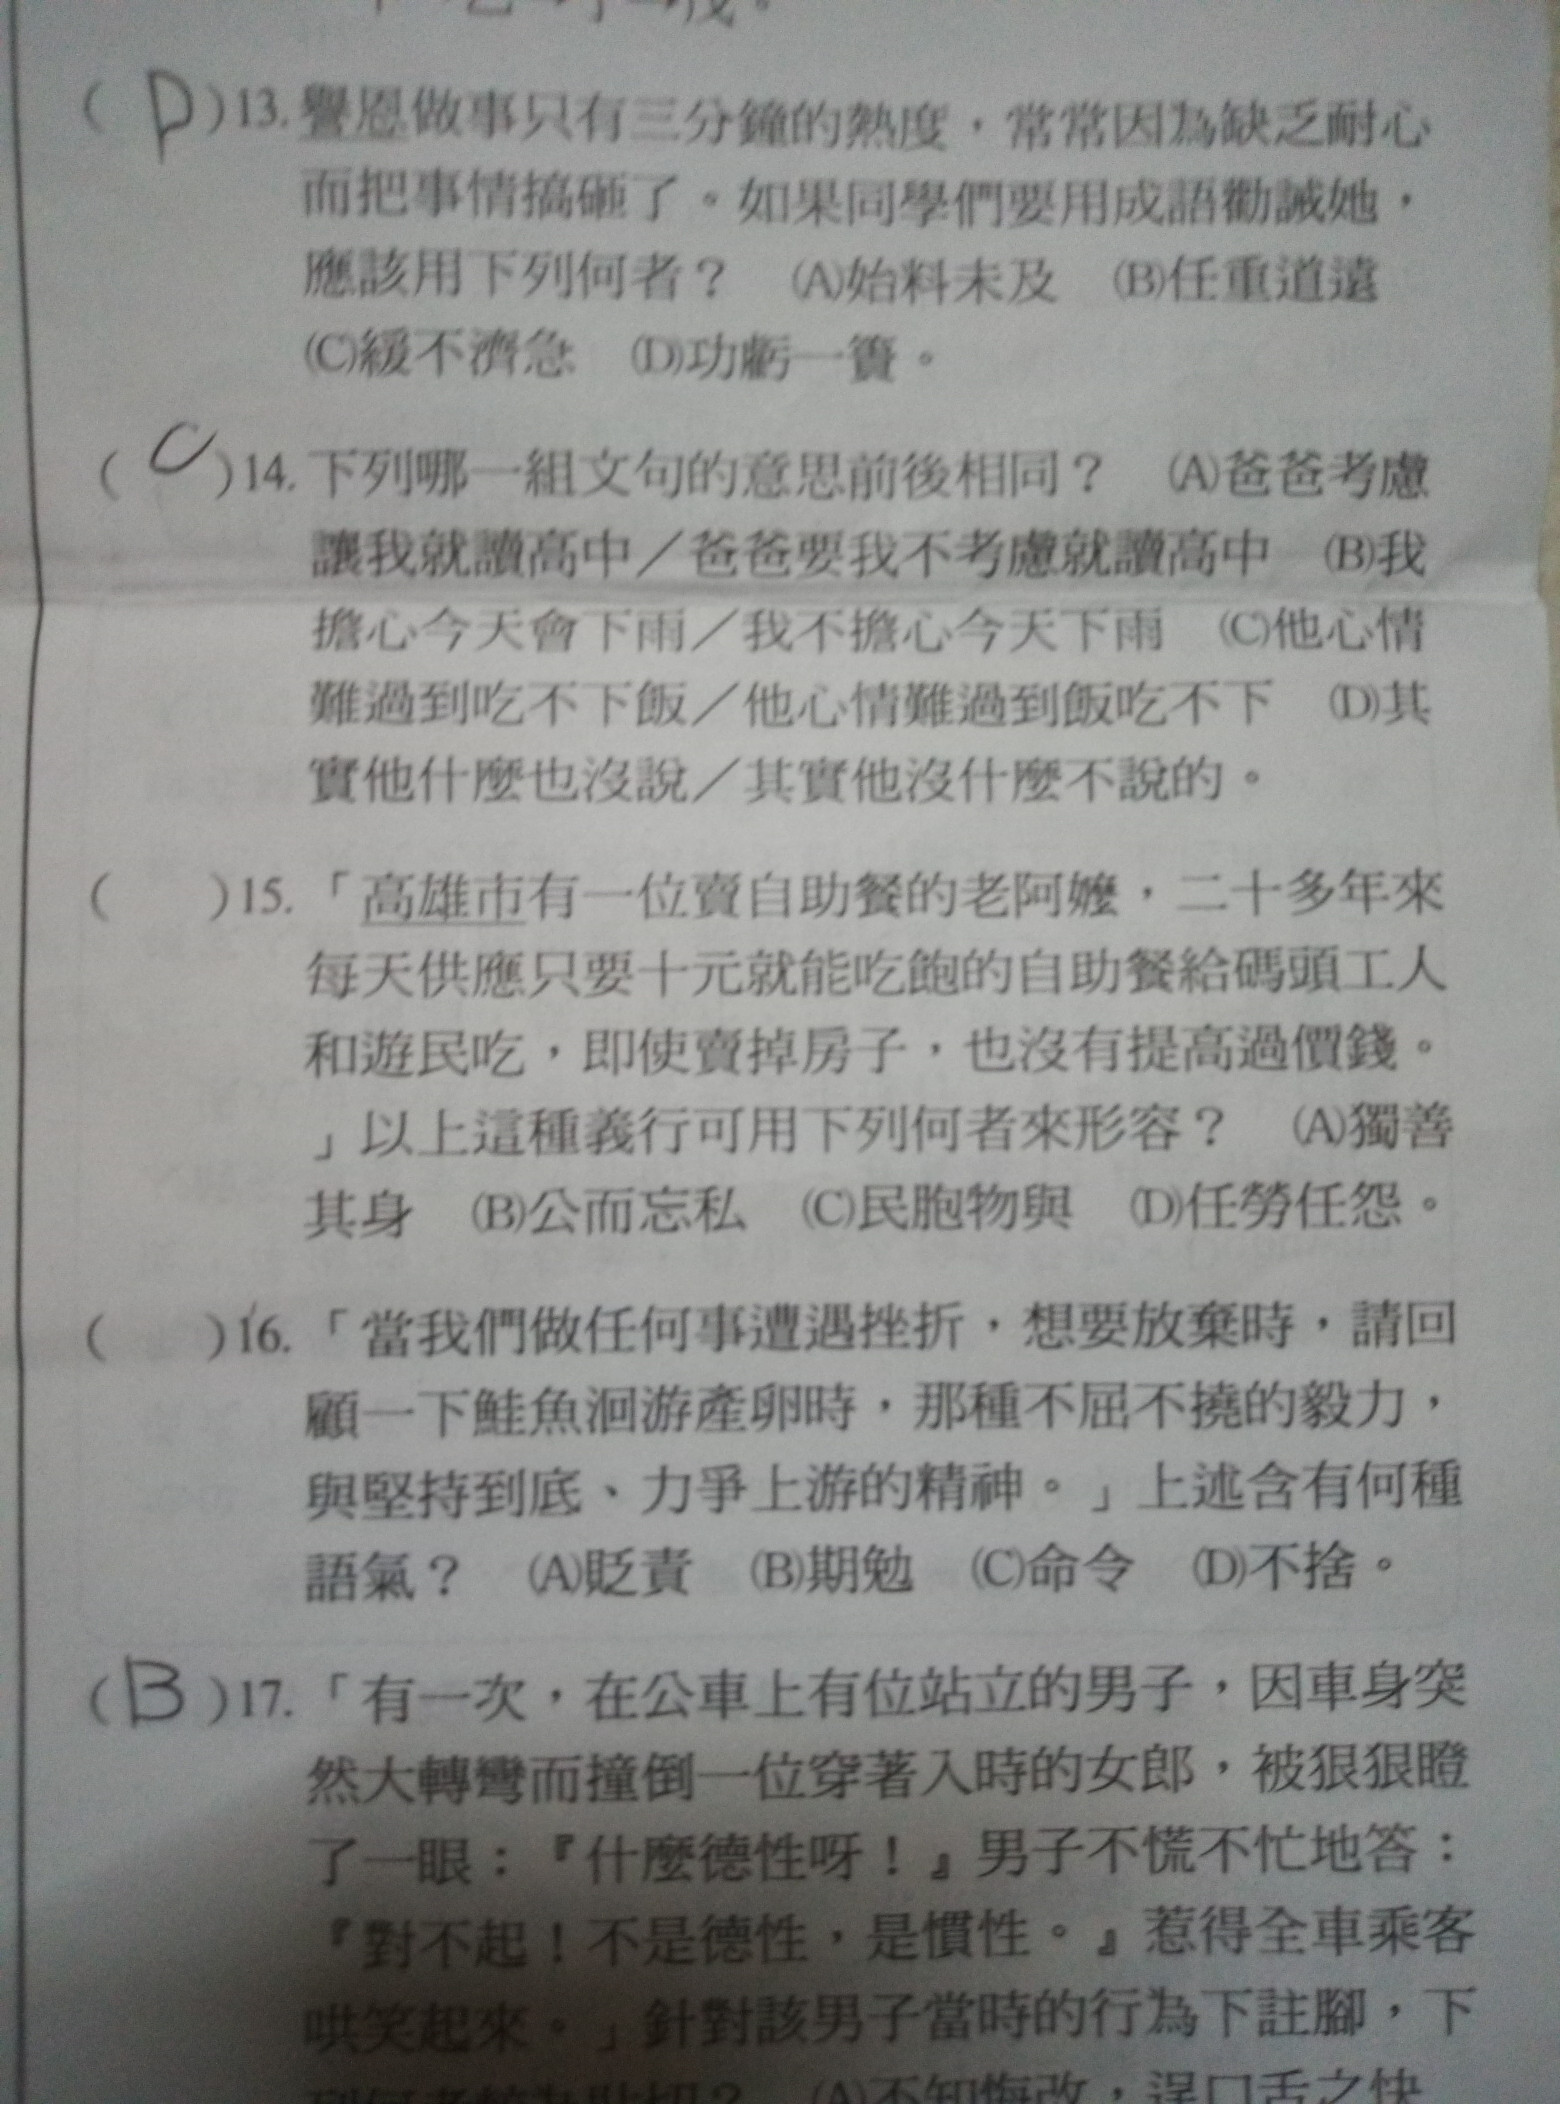 ( D )13.譽恩做事只有三分鐘的熱度，常常因為缺乏耐心
而把事情搞砸了。如果同學們要用成語勸誡她，
應該用下列何者？　(A)始料未及　(B)任重道遠
(C)緩不濟急　(D)功虧一簣。
( C )14.下列哪一組文句的意思前後相同？　(A)爸爸考慮
讓我就讀高中／爸爸要我不考慮就讀高中　(B)我
擔心今天會下雨／我不擔心今天下雨　(C)他心情
難過到吃不下飯／他心情難過到飯吃不下　(D)其
實他什麼也沒說／其實他沒什麼不說的。
(　　)15.「高雄市有一位賣自助餐的老阿嬤，二十多年來
每天供應只要十元就能吃飽的自助餐給碼頭工人
和遊民吃，即使賣掉房子，也沒有提高過價錢。
」以上這種義行可用下列何者來形容？　(A)獨善
其身　(B)公而忘私　(C)民胞物與　(D)任勞任怨。
(　　)16.「當我們做任何事遭遇挫折，想要放棄時，請回
顧一下鮭魚洄游產卵時，那種不屈不撓的毅力，
與堅持到底、力爭上游的精神。」上述含有何種
語氣？　(A)貶責　(B)期勉　(C)命令　(D)不捨。
( B )17.「有一次，在公車上有位站立的男子，因車身突
然大轉彎而撞倒一位穿著入時的女郎，被狠狠瞪
了一眼：『什麼德性呀！』男子不慌不忙地答：
『對不起！不是德性，是慣性。』惹得全車乘客
哄笑起來。」針對該男子當時的行為下註腳，下
列何者較為貼切？　(A)不知悔改，逞口舌之快